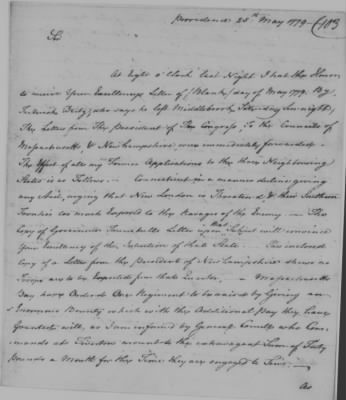 Providence 25th May 1779
Sir
At Eight o'Clock last Night I had the Honor
to receive Your Excellencys Letter of (Blank) day of May 1779. By
Frederick who says he left Middlebrook Saturday
The Letters from The President of The Congress, To the Councils of
Massachusetts & New Hampshire, were immediately forwarded.
The Effect of all my Former Applications to the three Neighbouring
States is as Follows. Connecticut in a manner declines giving
any Aid, urging that New London is Threatned & their Southern
Frontier too much Exposed to the Ravages of the Enemy — The
Copy of Governor Trumbulls Letter upon that Subject will convince
Your Excellency of the Intention of that State. The inclosed
Copy of a Letter from the President of New Hampshire shews no
Troops are to be Expected from that Quarter. — Massachusetts
Bay have Ordered One Regiment to be raised by Giving an
Enormous Bounty which with the Additional Pay they have
Granted will, as I am informed by General who Com-
mands at Tiverton amount to the extravagant Sum of
Pounds a Month for the Time they are engaged to Serve. —
as